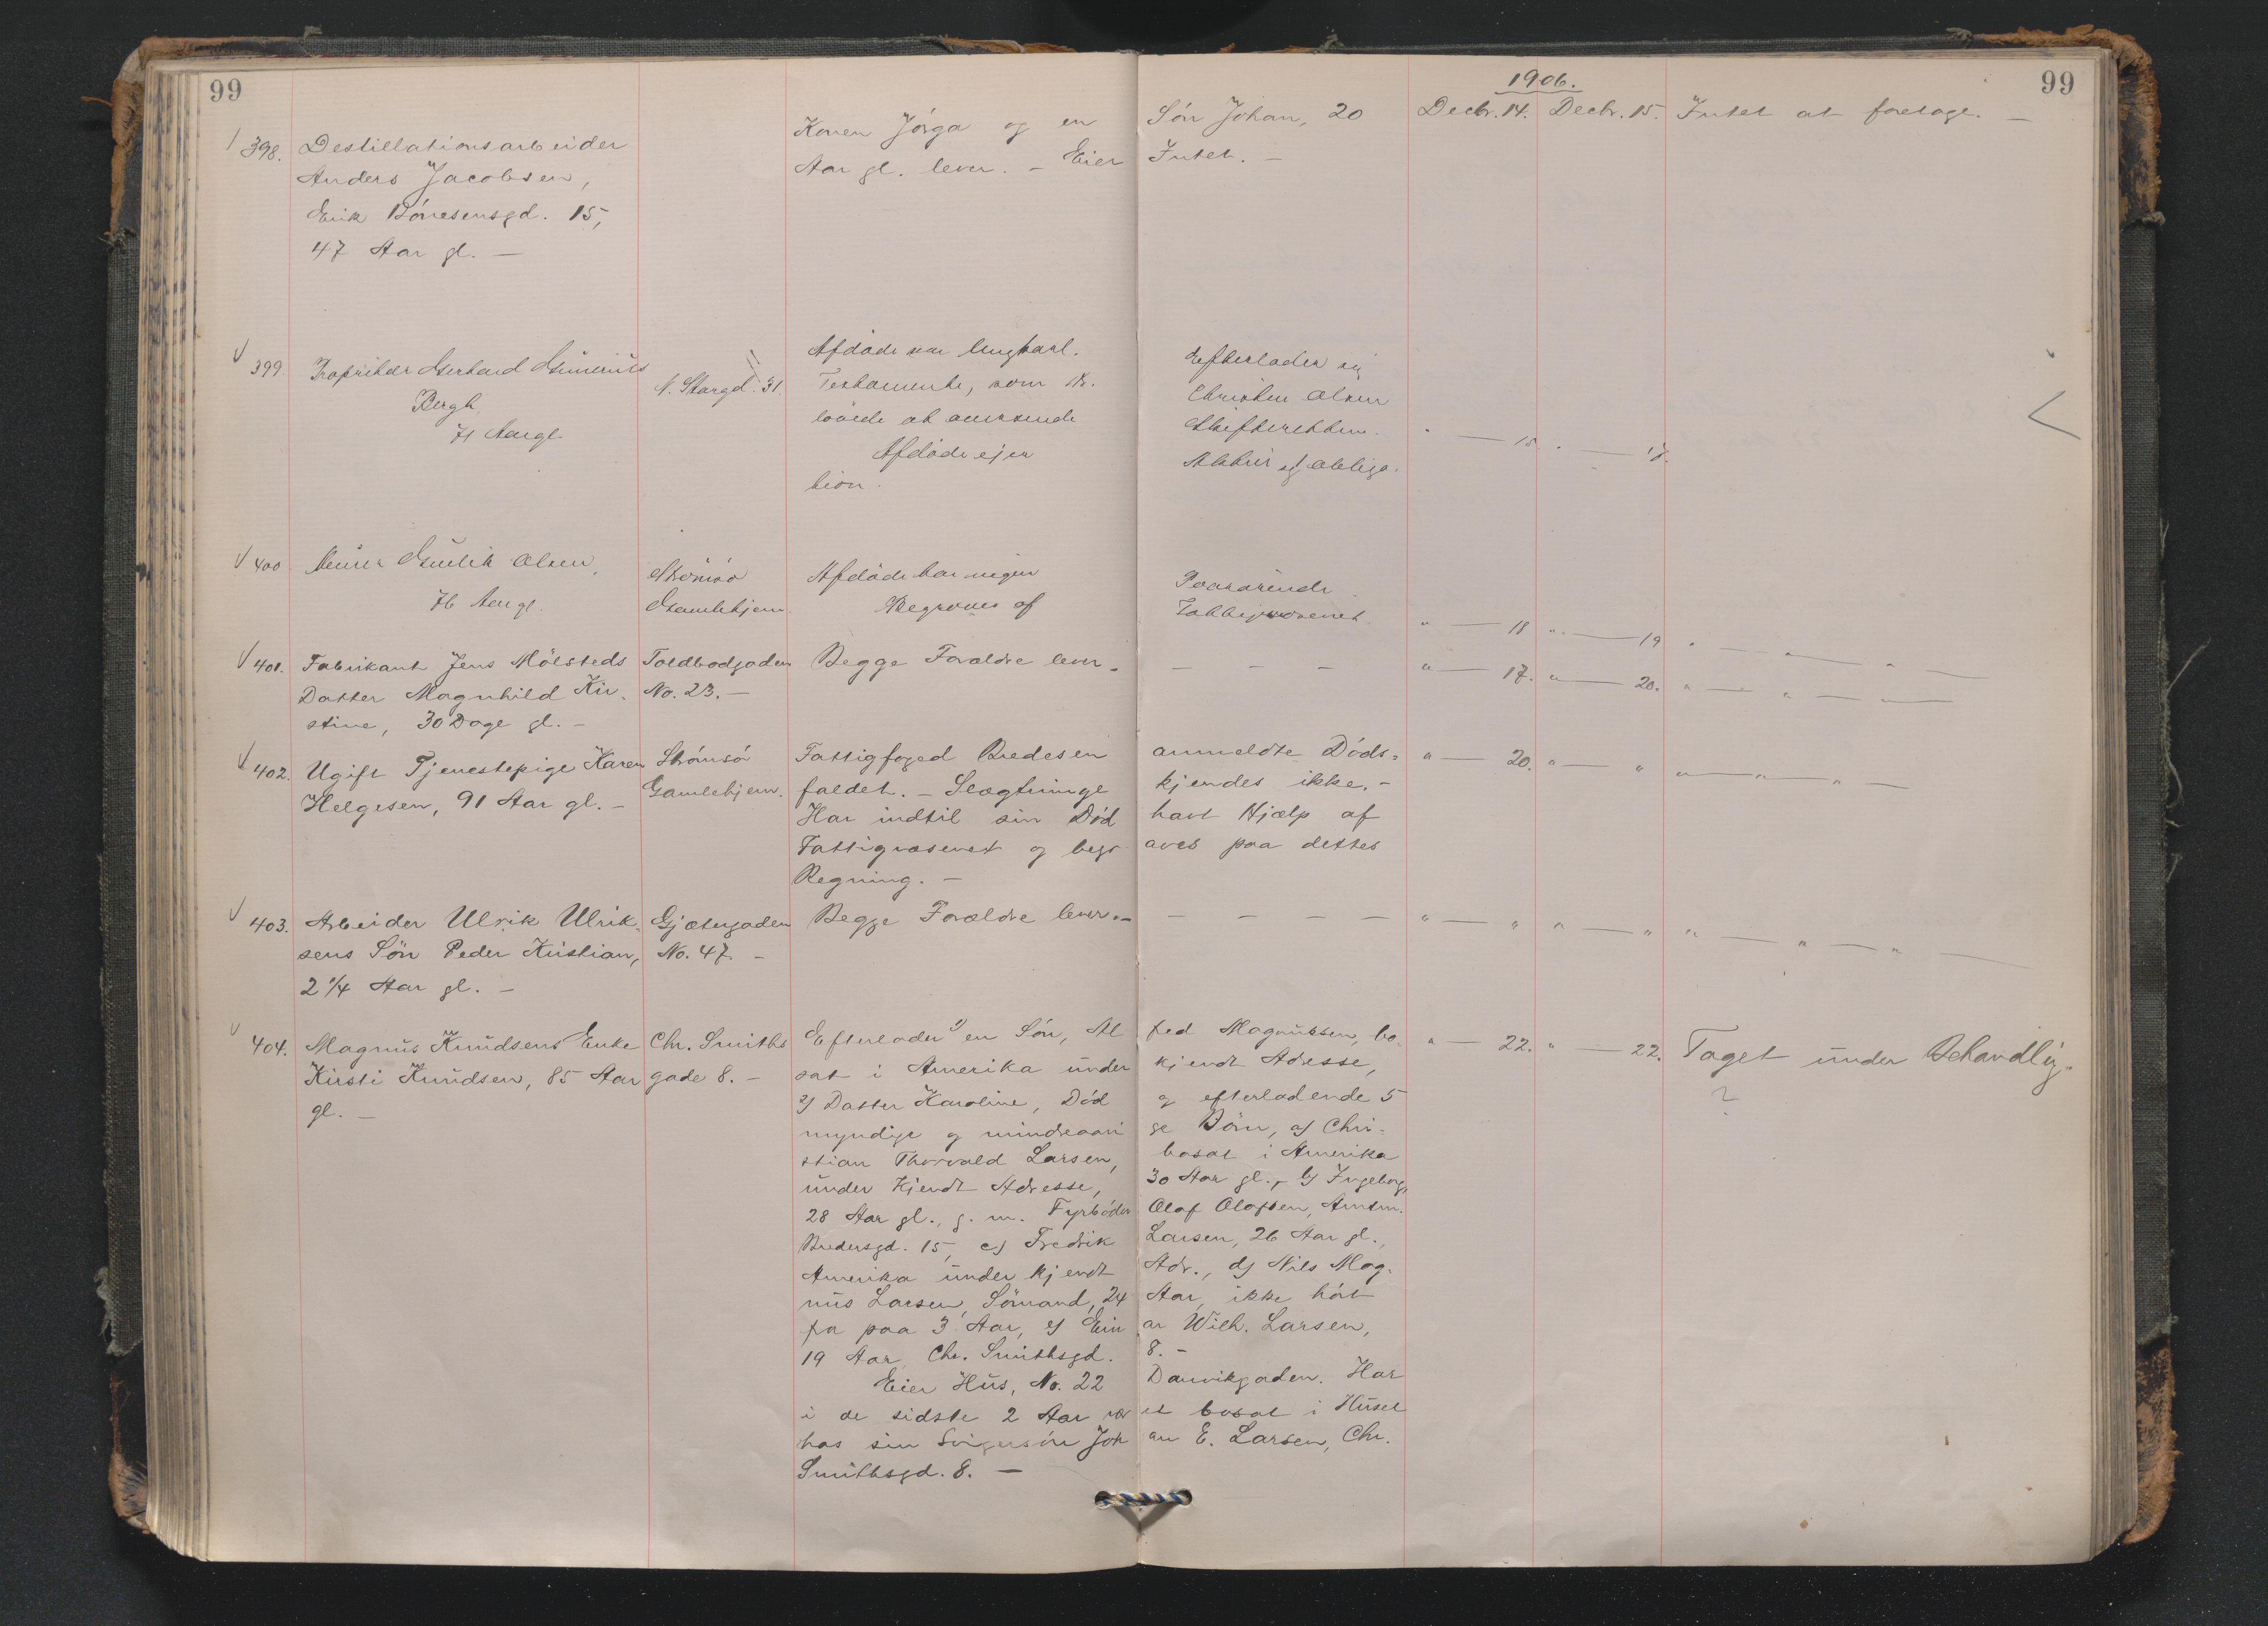 99
99
1906.
398. Destillationsarbeider
Anders Jacobsen,
Erik Börresensgd. 15,
47 Aar gl. —
Konen Jörga og en Sön Johan, 20
Aar gl. lever. — Eier Intet. —
Decbr. 14. Decbr. 15. Intet at foretage. —
399. Gerhard
Bergh,
71 Aar gl.
N. Storgd. 31.
Afdöde var ungkarl. Efterlader sig
Testamente, som Hr. Christen Olsen
lovede at Skifteretten.
Afdöde ejer Aktier og obliga-
tion.
" — 15 " — 17.
400 Murer Gulik Olsen,
76 Aar gl.
Strömsö
Gamlehjem.
Afdöde har ingen Paarörende.
Begraves af Fattigvæsenet
" — 18 " — 19 " — " — " —
401. Fabrikant Jens Mölsteds
Datter Magnhild Kir-
stine, 30 Dage gl. —
Toldbodgaden
No. 23. —
Begge Forældre lever. — — —
" — 17. " — 20. " — " — " —
402. Ugift Tjenestepige Karen
Helgesen, 91 Aar gl. —
Strömsö
Gamlehjem.
Fattigfoged Bredesen anmeldte Döds-
faldet. — Slægtninge kjendes ikke. —
Har indtil sin Död havt Hjælp af
Fattigvæsenet og begr aves paa dettes
Regning. —
" — 20. " — " " — " — " —
403. Arbeider Ulrik Ulrik-
sens Sön Peder Kristian,
2 1/4 Aar gl. —
Gjætergaden
No. 47. —
Begge Forældre lever. — — — — —
" — " " — " " — " — " —
404. Magnus Knudsens Enke
Kirsti Knudsen, 85 Aar
gl. —
Chr. Smiths
gade 8. —
Efterlader 1) en Sön, Al fred Magnussen, bo-
sat i Amerika under kjendt Adresse,
2) Datter Karoline, Död og efterladende 5
myndige og mindreaari ge Börn, a) Chri-
stian Thorvald Larsen, bosat i Amerika
under kjendt Adresse, 30 Aar gl., b) Ingeborg,
28 Aar gl., g. m. Fyrböder Olaf Olafsen, Amtm.
Bredersgd. 15, c) Fredrik Larsen, 26 Aar gl.,
Amerika under kjendt Adr., d) Nils Mag-
nus Larsen, Sömand, 24 Aar, ikke hört
fra paa 3 Aar, e) Ein ar Wilh. Larsen,
19 Aar, Chr. Smithsgd. 8. —
Eier Hus, No. 22 Danvikgaden. Har
i de sidste 2 Aar vær et bosat i Huset
hos sin Svigersön Joh an E. Larsen, Chr.
Smithsgd. 8. —
" — 22. " — 22. Taget under Behandling.
?